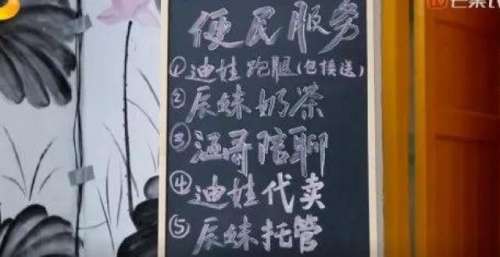 芒果TV
便民服务
①迪娃跑腿(包接送)
②辰妹奶茶
③涵哥陪聊
④迪娃代卖
⑤辰妹托管